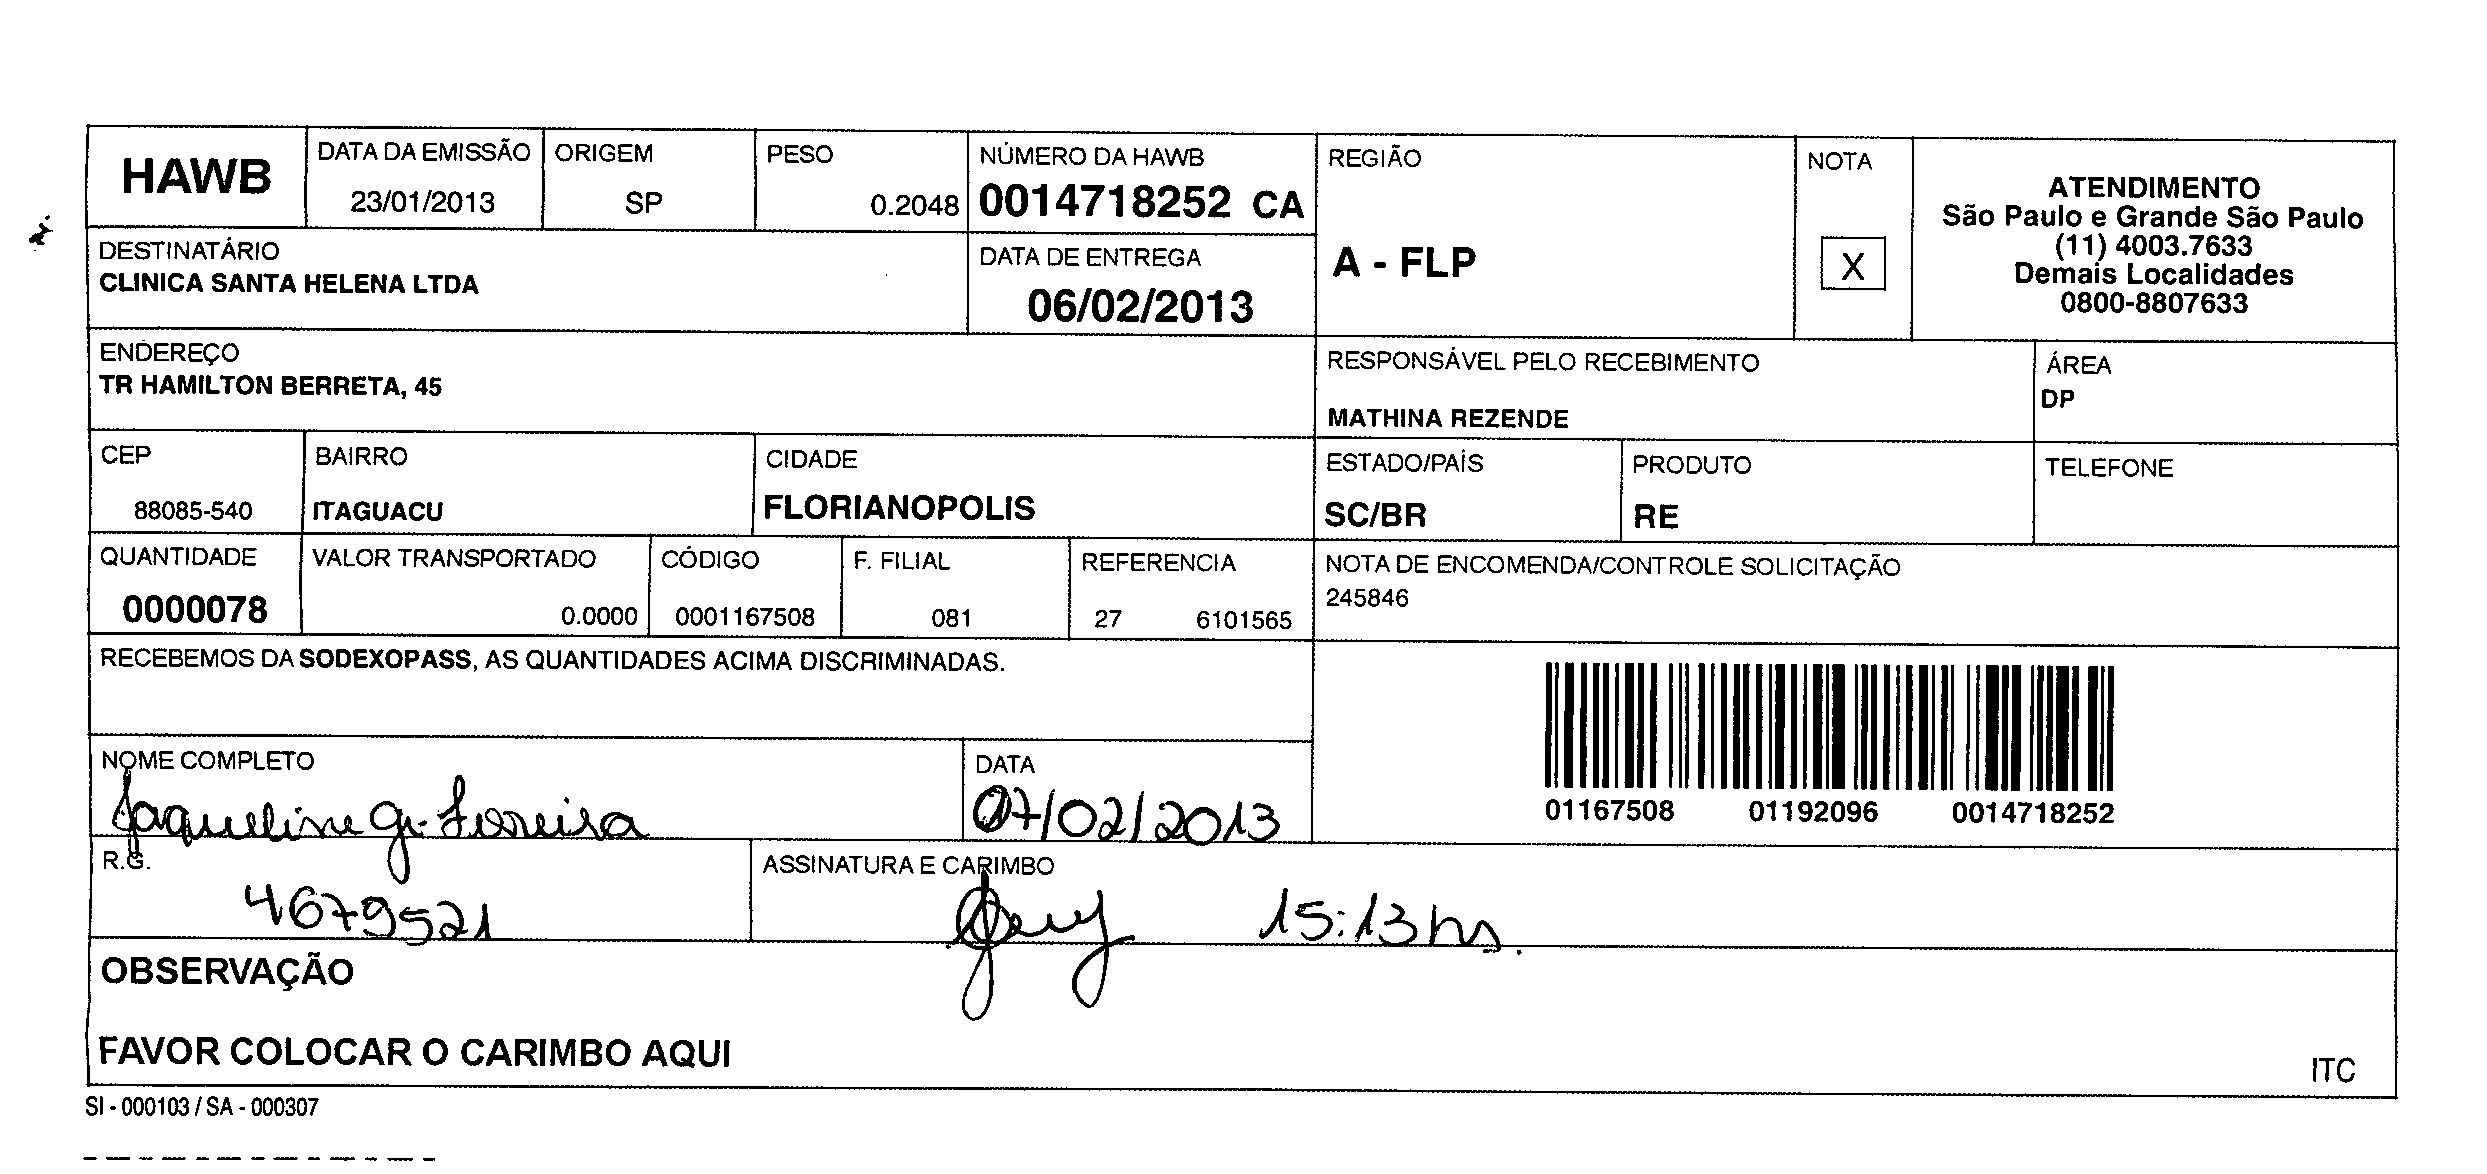 HAWB
DATA DA EMISSÃO
23/01/2013
ORIGEM
SP
PESO
0.2048
NÚMERO DA HAWB
0014718252 CA
REGIÃO
A - FLP
NOTA
X
ATENDIMENTO
São Paulo e Grande São Paulo
(11) 4003.7633
Demais Localidades
0800-8807633
DESTINATÁRIO
CLINICA SANTA HELENA LTDA
DATA DE ENTREGA
06/02/2013
ENDEREÇO
TR HAMILTON BERRETA, 45
RESPONSÁVEL PELO RECEBIMENTO
MATHINA REZENDE
ÁREA
DP
CEP
88085-540
BAIRRO
ITAGUACU
CIDADE
FLORIANOPOLIS
ESTADO/PAÍS
SC/BR
PRODUTO
RE
TELEFONE
QUANTIDADE
0000078
VALOR TRANSPORTADO
0.0000
CÓDIGO
0001167508
F. FILIAL
081
REFERENCIA
27 6101565
NOTA DE ENCOMENDA/CONTROLE SOLICITAÇÃO
245846
RECEBEMOS DA SODEXOPASS, AS QUANTIDADES ACIMA DISCRIMINADAS.
01167508 01192096 0014718252
NOME COMPLETO
Jaqueline G. Ferreira
DATA
07/02/2013
R.G.
4679521
ASSINATURA E CARIMBO
15:13hs.
OBSERVAÇÃO
FAVOR COLOCAR O CARIMBO AQUI
ITC
SI - 000103 / SA - 000307